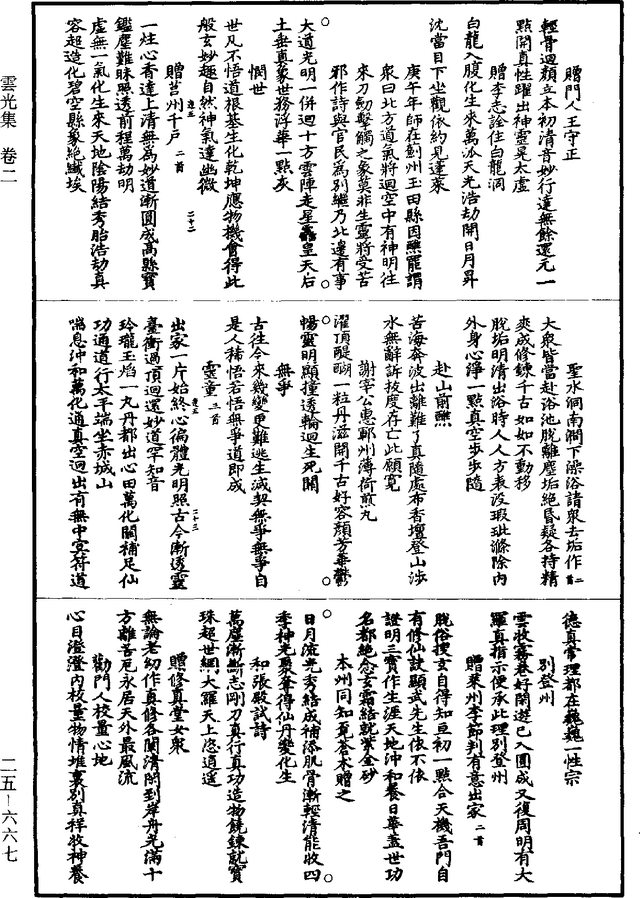 雲光集　卷二
二五－六六七
贈門人王守正
輕骨迴顏立本初清音妙行達無餘還元一
點開真性躍出神靈晃太虛
贈李志詮住白龍洞
白龍入腹化生來萬派天光浩劫開日月昇
沈當目下坐觀依約見蓬萊
庚午年師在薊州玉田縣因醮罷謂
眾曰北方道氣將迴空中有神明往
來刀劍擊觸之象莫非生靈將受苦
邪作詩與官民為別繼乃北邊有事
大道光明一併迴十方雲陣走星靁皇天后
土垂真象世務浮華一點灰
憫世
世凡不悟道根基生化乾坤應物機會得此
般玄妙趣自然神氣達幽微
贈莒州千戶二首
一炷心香達上清無為妙道漸圓成高縣寶
鑑塵難昧照透前程萬劫明
虛無一氣化生來天地陰陽結秀胎浩劫真
容超造化碧空縣象絕纖埃
聖水洞南澗下澡浴諸眾去垢作二首
大眾皆當赴浴池脫離塵垢絕昏疑各持精
爽成修鍊千古如如不動移
脫垢明清出浴時人人方表沒瑕玼滌除內
外身心淨一點真空步步隨
赴山前醮
苦海奔波出離難了真隨處布香壇登山涉
水無辭訴拔度存亡此願寬
謝宰公惠鄆州薄荷煎丸
濯頂醍醐一粒丹滋開千古好容顏芳華鬱
暢靈明顯撞透輪迴生死關
無爭
古往今來幾變更難逃生滅契無爭無爭自
是人稀悟若悟無爭道即成
靈童二首
出家一片始終心徧體光明照古今漸透靈
臺衝過頂迴還妙道罕知音
玲瓏玉焰一丸丹都出心田萬化關補足仙
功通道行太平端坐赤城山
喘息沖和萬化通真空迥出有無中冥符道
德真常理都在巍巍一性宗
別登州
雲收霧卷好閑遊已入圓成又復周明有大
羅真指示便承此理別登州
贈萊州李節判有意出家二首
脫俗搜玄自得知亘初一點合天機吾門自
有修仙訣顯武先生依不依
證明三寶作生涯天地沖和養日華蓋世功
名都絕愈玄霜結就紫金砂
本州同知覓蒼朮贈之
日月流光秀結成補添肌骨漸輕清能收四
季神光聚奪得仙丹變化生
和張殿試詩
萬塵漸斷志剛刀真行真功造物饒鍊就寶
珠超世網大羅天上恣逍遙
贈修真堂女眾
無論老幼作真修各闡清閑到岸舟光滿十
方離苦厄永居天外最風流
勸門人校量心地
心目澄澄內校量物情堆裏別真祥收神養